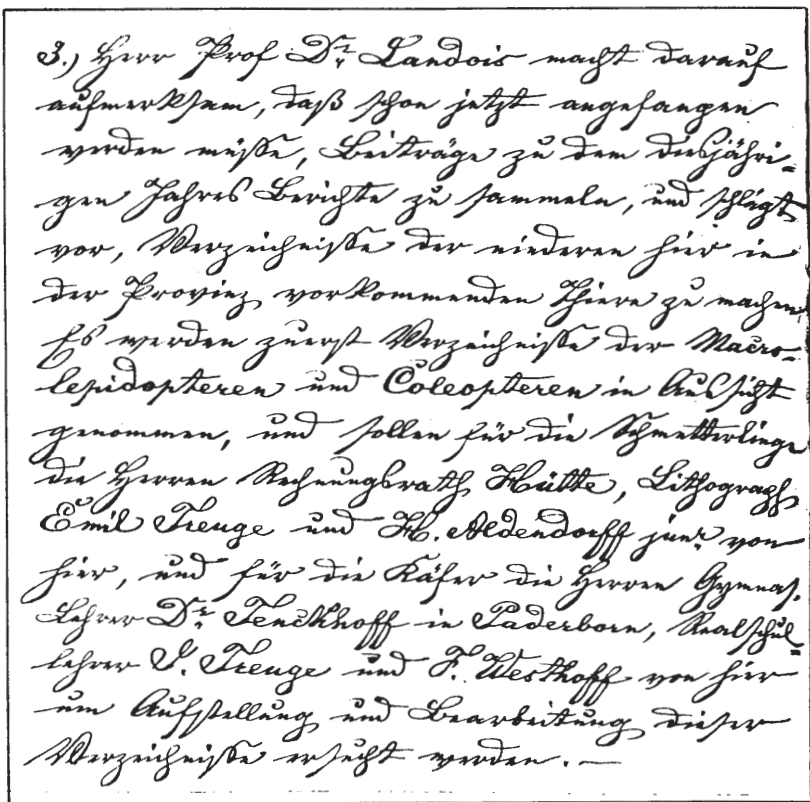 3.) Herr Prof Dr. Landois macht darauf
aufmerksam, daß schon jetzt angefangen
werden müsse, Beiträge zu dem diesjähri-
gen Jahres Berichte zu sammeln, und schlägt
vor, Verzeichnisse der niederen hier in
der Provinz vorkommenden Thiere zu machen.
Es werden zuerst Verzeichnisse der Macro-
lepidopteren und Coleopteren in Aussicht
genommen, und sollen für die Schmetterlinge
die Herren Rechnungsrath Hütte, Lithograph
Emil Treuge und H. Aldendorff junr. von
hier, und für die Käfer die Herren Gymnas.
Lehrer Dr. Tenckhoff in Paderborn, Realschul-
lehrer J. Treuge und F. Westhoff von hier
um Aufstellung und Bearbeitung dieser
Verzeichnisse ersucht werden. —